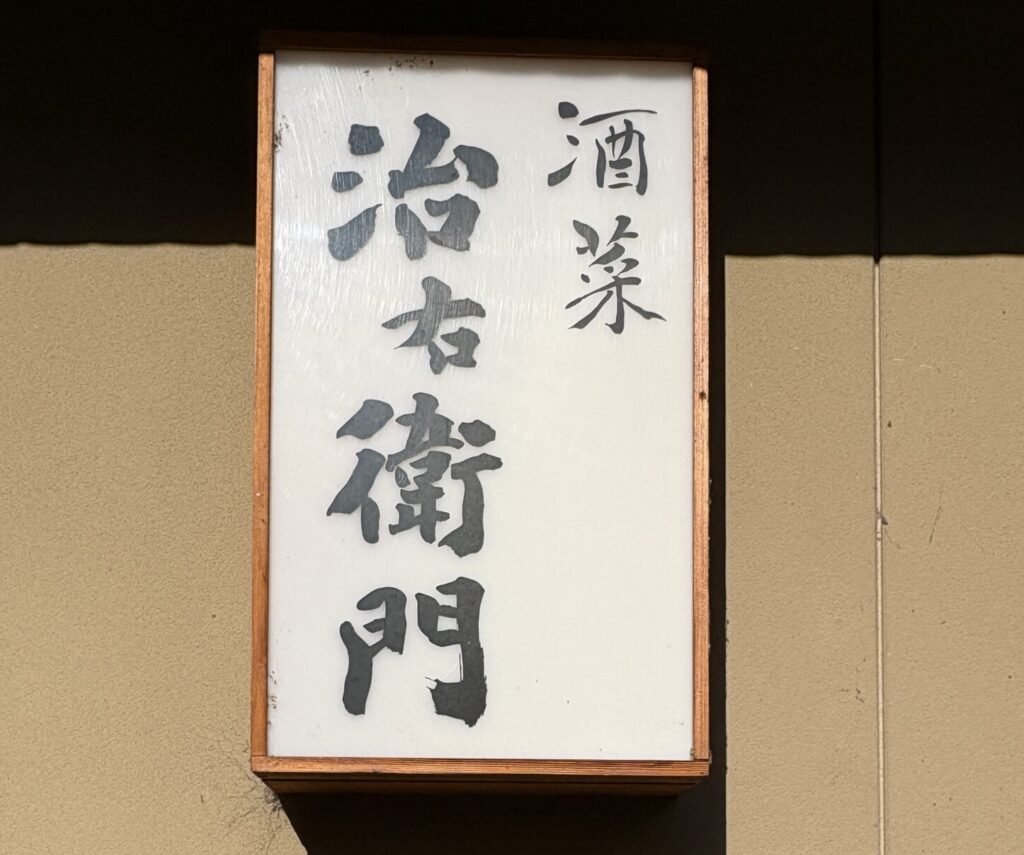 酒菜
治右衛門